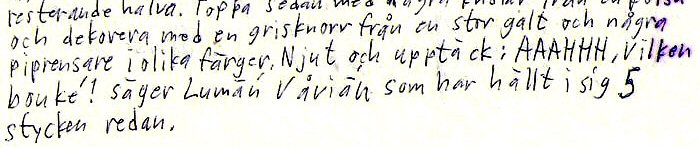 resterande halva. Toppa sedan med några
och dekorera med en grisknorr från en stor galt och några
piprensare i olika färger. Njut och upptäck: AAAHHH, Vilken
bouké! säger Lumáń Våriáń som har hällt i sig 5
stycken redan.